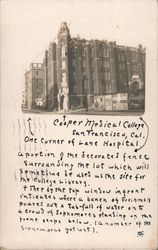 Cooper Medical College
San Francisco, Cal.
One corner of Lane Hospital
a portion of the decorated fence
surrounding the lot which will
sometime be used as the site for
the College Library.
+ The top window in front
indicates where a bunch of freshmen
poured out a tub-full of water onto
a crowd of sophomores standing on the
steps below. (a number of us
sophomores got wet).